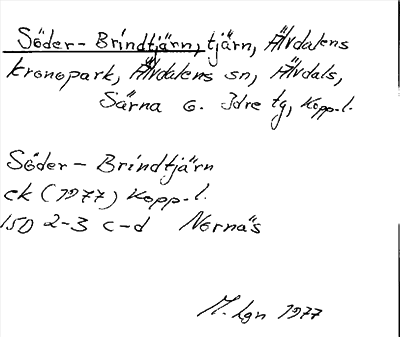 Söder-Brindtjärn, tjärn, Älvdalens
kronopark, Älvdalens sn, Älvdals,
Särna o. Idre tg, Kopp.l.
Söder-Brindtjärn
ek (1977) Kopp.l.
15D 2-3 c-d Nornäs
M. Lgn 1977